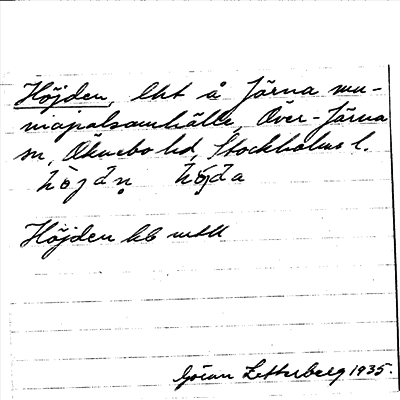 Höjden, lht å Järna mu-
nicipalsamhälle, Över-Järna
sn, Öknebo hd, Stockholms l.
hö̀jdn̥ hö̀jda
Höjden kb
Göran Zetterberg 1935.